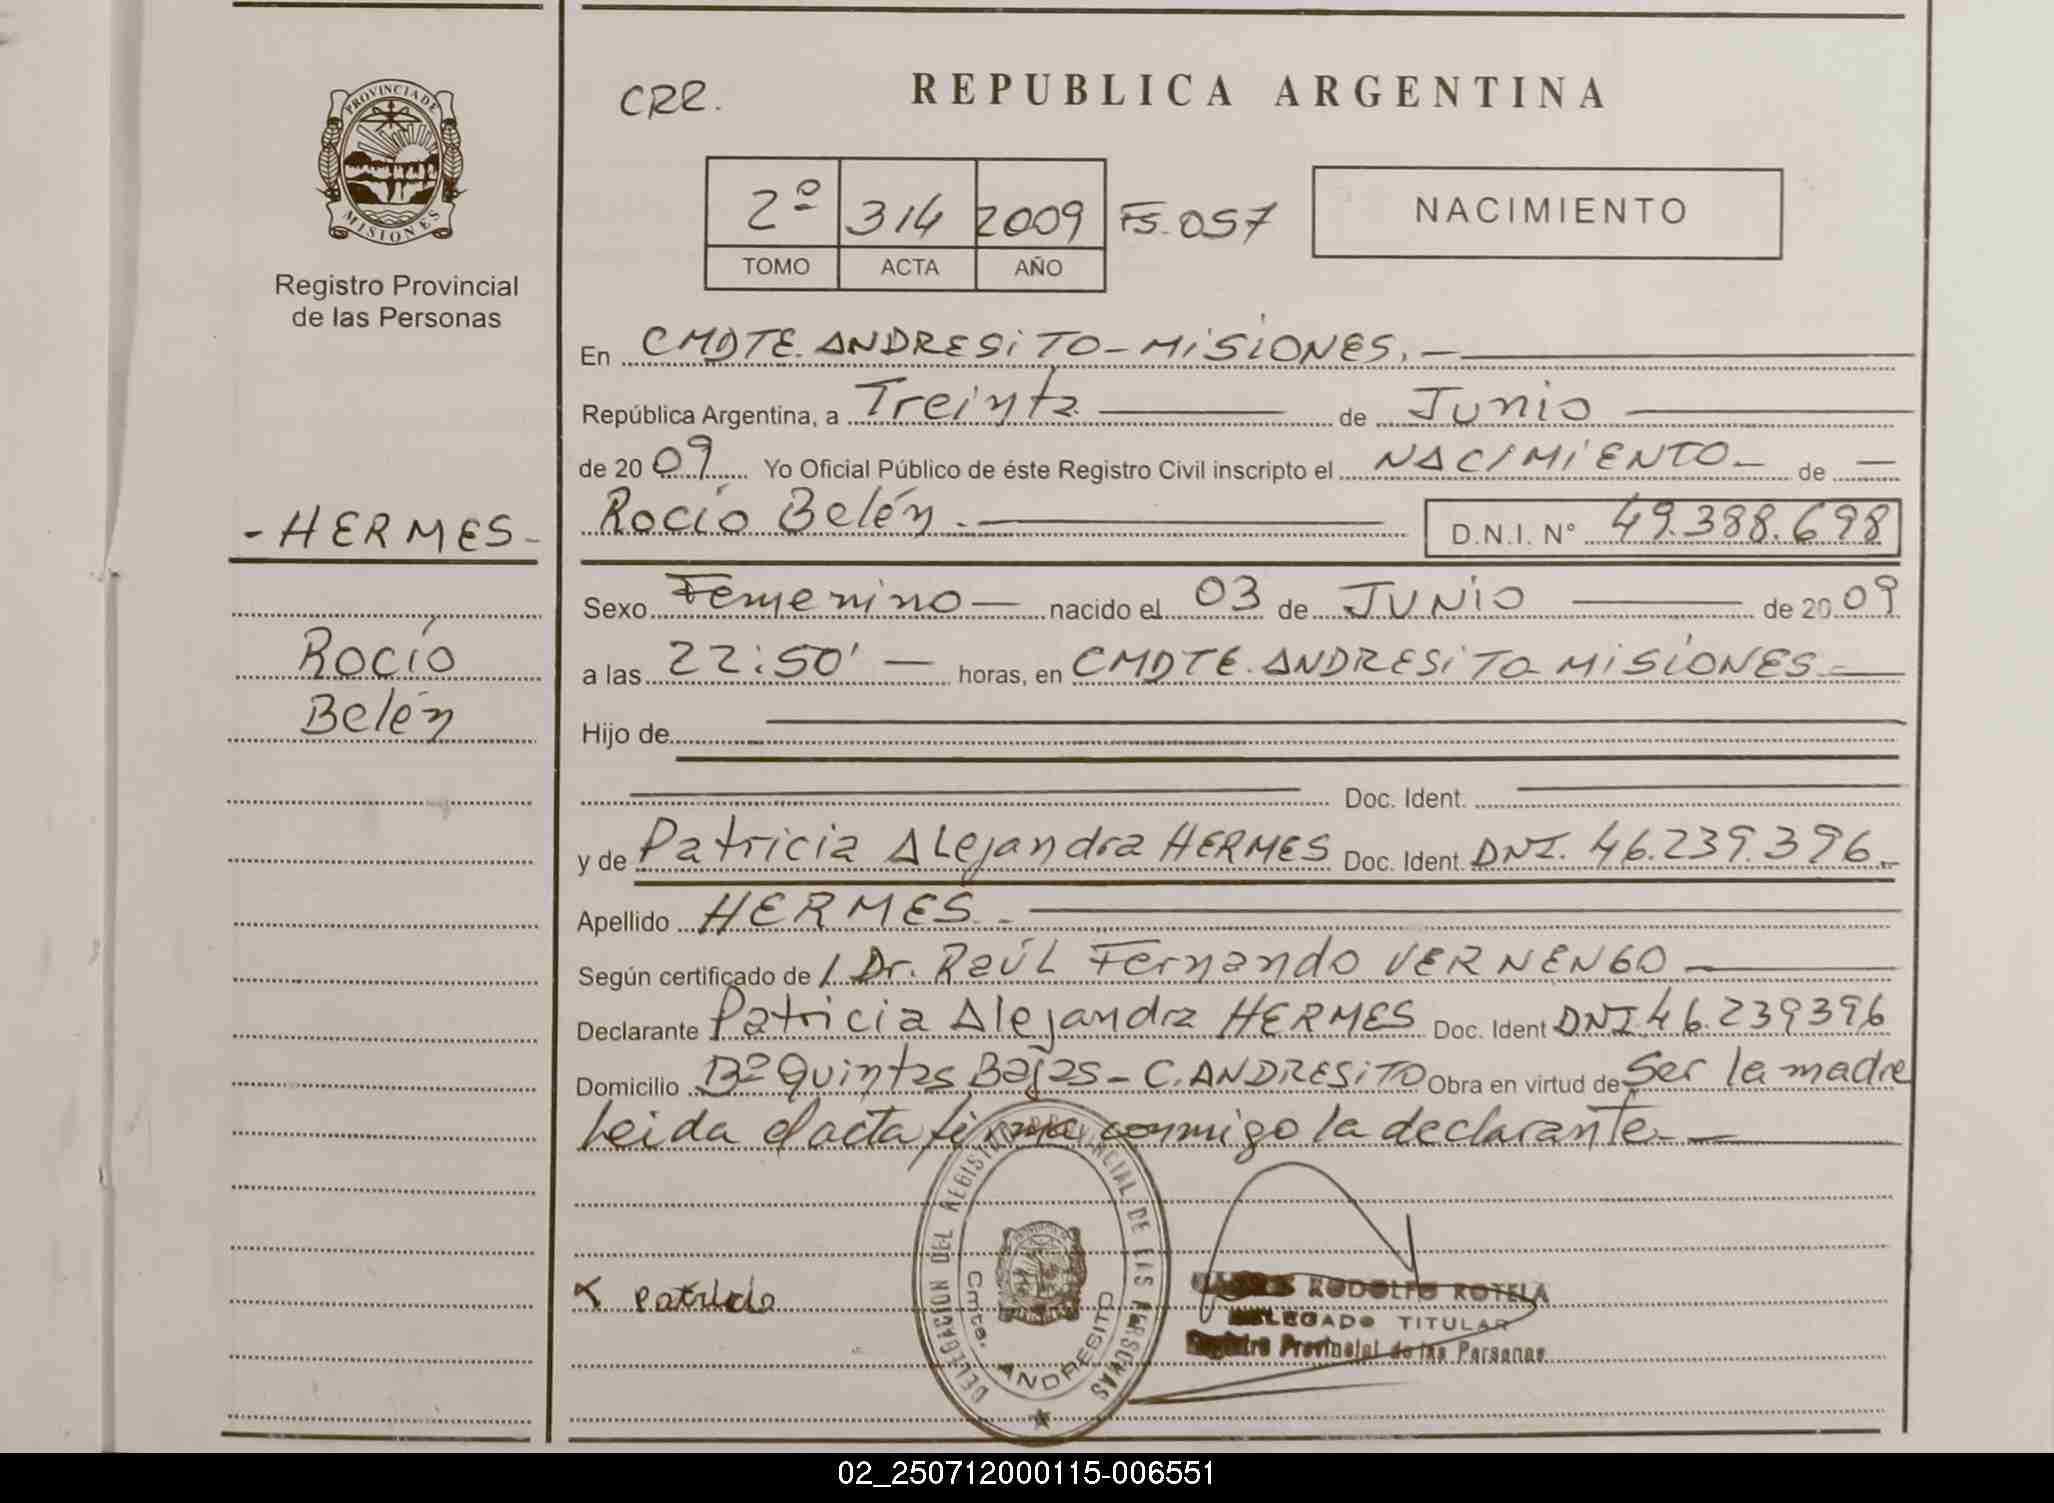 CRR.
REPUBLICA ARGENTINA
PROVINCIA DE
MISIONES
Registro Provincial
de las Personas
2º 314 2009 Fs. 057
TOMO ACTA AÑO
NACIMIENTO
En CMDTE. ANDRESiTO - MiSiONES. -
República Argentina, a Treinta de Junio
de 2009 Yo Oficial Público de éste Registro Civil inscripto el NACIMIENTO - de -
Rocío Belén. - D.N.I. Nº 49.388.698
- HERMES -
Rocío
Belén
Sexo Femenino - nacido el 03 de JUNiO de 2009
a las 22:50' - horas, en CMDTE. ANDRESiTO MiSiONES -
Hijo de
Doc. Ident.
y de Patricia Alejandra HERMES Doc. Ident. DNI. 46.239.396.-
Apellido HERMES. -
Según certificado de / Dr. Raúl Fernando VERNENGO -
Declarante Patricia Alejandra HERMES Doc. Ident DNI 46.239396
Domicilio Bº Quintas Bajas - C. ANDRESiTO Obra en virtud de Ser la madre
Leida el acta firma conmigo la declarante. -
DELEGACION DEL REGISTRO PROVINCIAL DE LAS PERSONAS
Cmte. ANDRESITO
RODOLFO ROTELA
DELEGADO TITULAR
Registro Provincial de las Personas
02_250712000115-006551